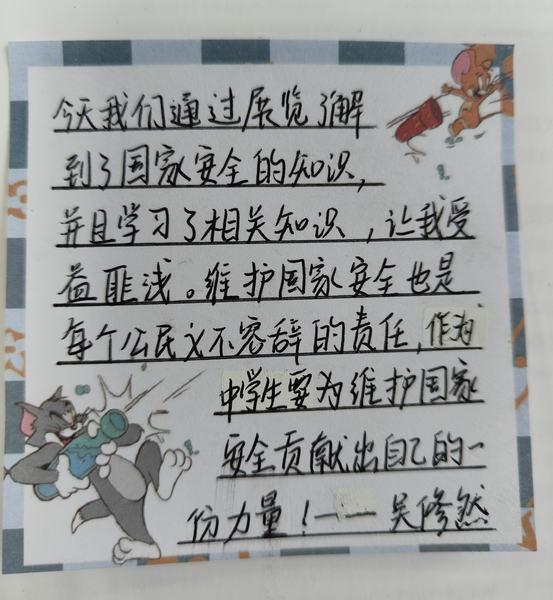 今天我们通过展览了解
到了国家安全的知识，
并且学习了相关知识，让我受
益匪浅。维护国家安全也是
每个公民义不容辞的责任，作为
中学生要为维护国家
安全贡献出自己的一
份力量！——吴修然